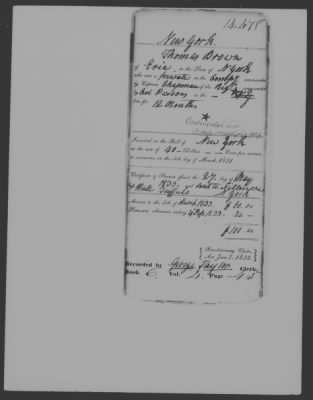 New York.
Thomas Brown
of Erie in the State of N York
who was a private in the Compy commanded
by Captain Chapman of the Regt commanded
by Col Parsons in the
line for 12 Months
Inscribed on the Roll of New York
at the rate of 40 Dollars Cents per annum,
to commence on the 4th day of March, 1831.
Certificate of Pension issued the 27 day of May
1833
Hull Buffalo N York
Arrears to the 4th of March 1833 $ 80.00
Semi-anl. allowance ending 4 Sep 1833 20
$ 100.00
Revolutionary Claim,
Act June 7, 1832.
Recorded by George Taylor Clerk,
Book E. Vol. Page